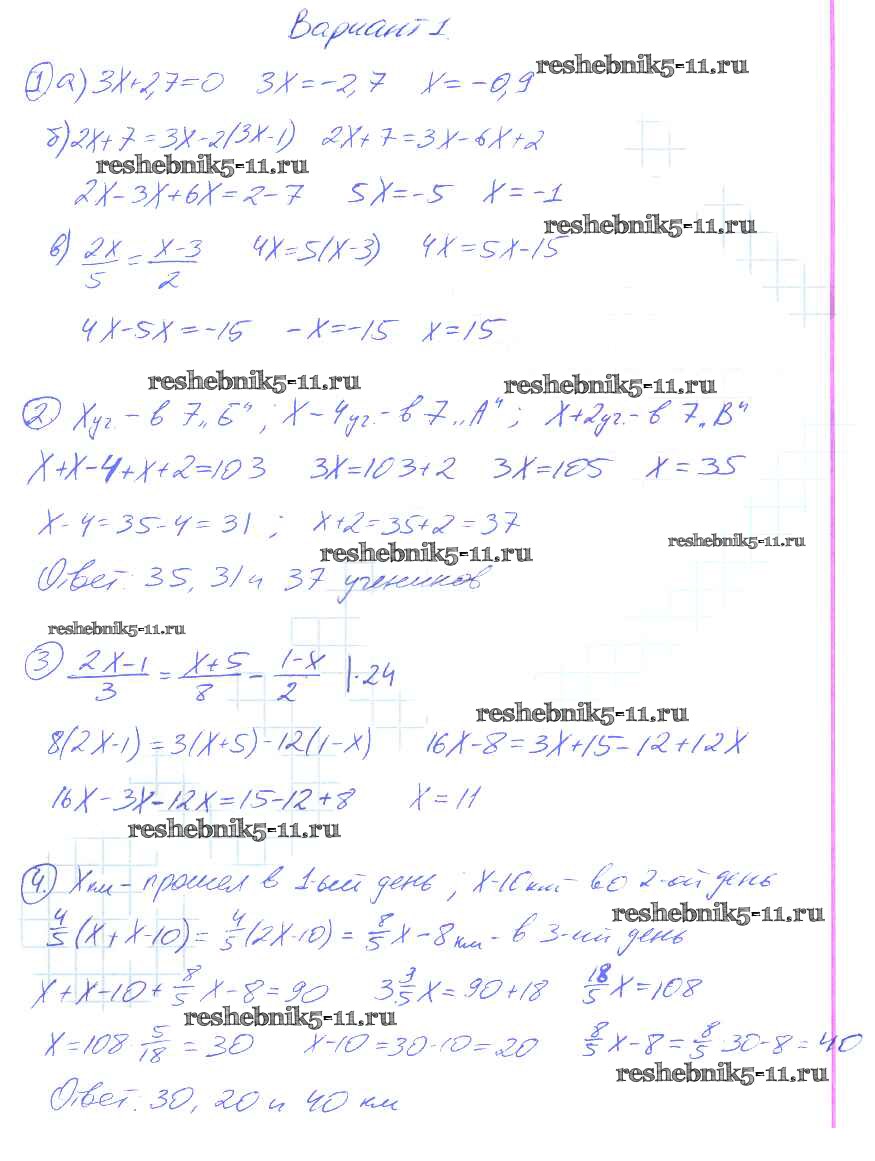 Вариант 1.
reshebnik5-11.ru
① а) 3x+2,7=0   3x=-2,7   x=-0,9
б) 2x+7=3x-2(3x-1)   2x+7=3x-6x+2
reshebnik5-11.ru
2x-3x+6x=2-7   5x=-5   x=-1
reshebnik5-11.ru
в) 2x/5 = x-3/2   4x=5(x-3)   4x=5x-15
4x-5x=-15   -x=-15   x=15
reshebnik5-11.ru   reshebnik5-11.ru
② x уч. - в 7 „Б"; x-4 уч. - в 7 „А"; x+2 уч. - в 7 „В"
x+x-4+x+2=103   3x=103+2   3x=105   x=35
x-4=35-4=31;   x+2=35+2=37
reshebnik5-11.ru   reshebnik5-11.ru
Ответ: 35, 31 и 37 учеников
reshebnik5-11.ru
③ 2x-1/3 = x+5/8 - 1-x/2 |·24
reshebnik5-11.ru
8(2x-1)=3(x+5)-12(1-x)   16x-8=3x+15-12+12x
16x-3x-12x=15-12+8   x=11
reshebnik5-11.ru
④. x км - прошел в 1-ый день; x-10 км - во 2-ой день
reshebnik5-11.ru
4/5(x+x-10)=4/5(2x-10)=8/5x-8 км - в 3-ий день
x+x-10+8/5x-8=90   3 3/5x=90+18   18/5x=108
reshebnik5-11.ru
x=108·5/18=30   x-10=30-10=20   8/5x-8=8/5·30-8=40
reshebnik5-11.ru
Ответ: 30, 20 и 40 км